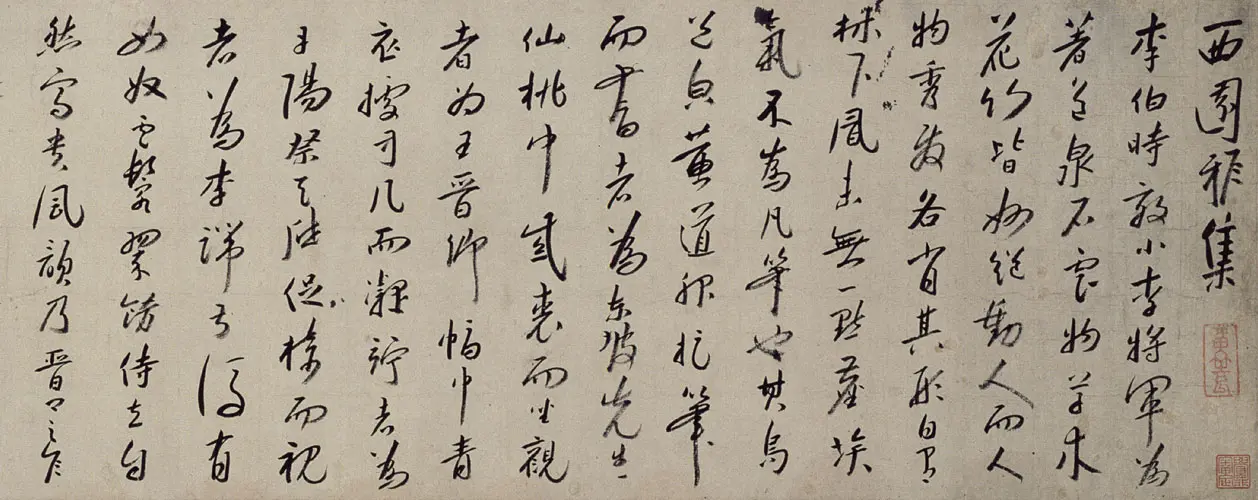 西園雅集
李伯時效小李將軍為
著色泉石雲物草木
花竹皆妙絕動人而人
物秀發各肖其形自有
林下風味無一點塵埃
氣不為凡筆也其烏
帽黃道服捉筆
而書者為東坡先生
仙桃巾紫裘而坐觀
者為王晉卿幅巾青
衣據方几而凝竚者為
丹陽蔡天啟捉椅而視
者為李端叔後有
女奴雲鬟翠飾侍立自
然富貴風韻乃晉卿之家